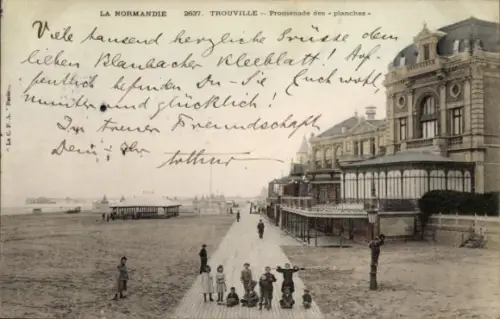 LA NORMANDIE 2637. TROUVILLE - Promenade des "planches"
Viele tausend herzliche Grüsse dem
lieben Blaubacher Kleeblatt! Hof-
fentlich befinden Du - Sie - Euch wohl,
munter und glücklich!
In treuer Freundschaft
Dein, Ihr